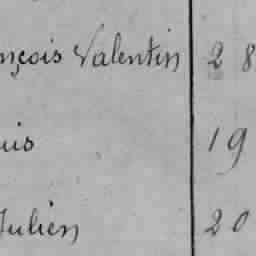 nçois Valentin 28
uis 19
Julien 20